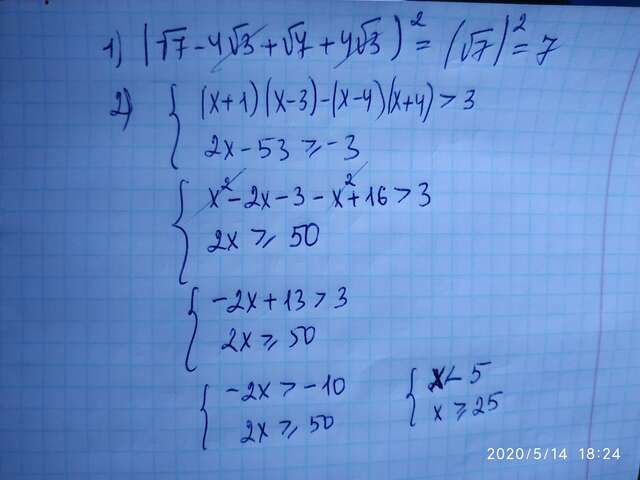 1) (√7 - 4√3 + √7 + 4√3)² = (√7)² = 7
2) { (x+1)(x-3)-(x-4)(x+4) > 3
2x - 53 ≥ -3
{ x² - 2x - 3 - x² + 16 > 3
2x ≥ 50
{ -2x + 13 > 3
2x ≥ 50
{ -2x > -10 { x < 5
2x ≥ 50 x ≥ 25
2020/5/14 18:24